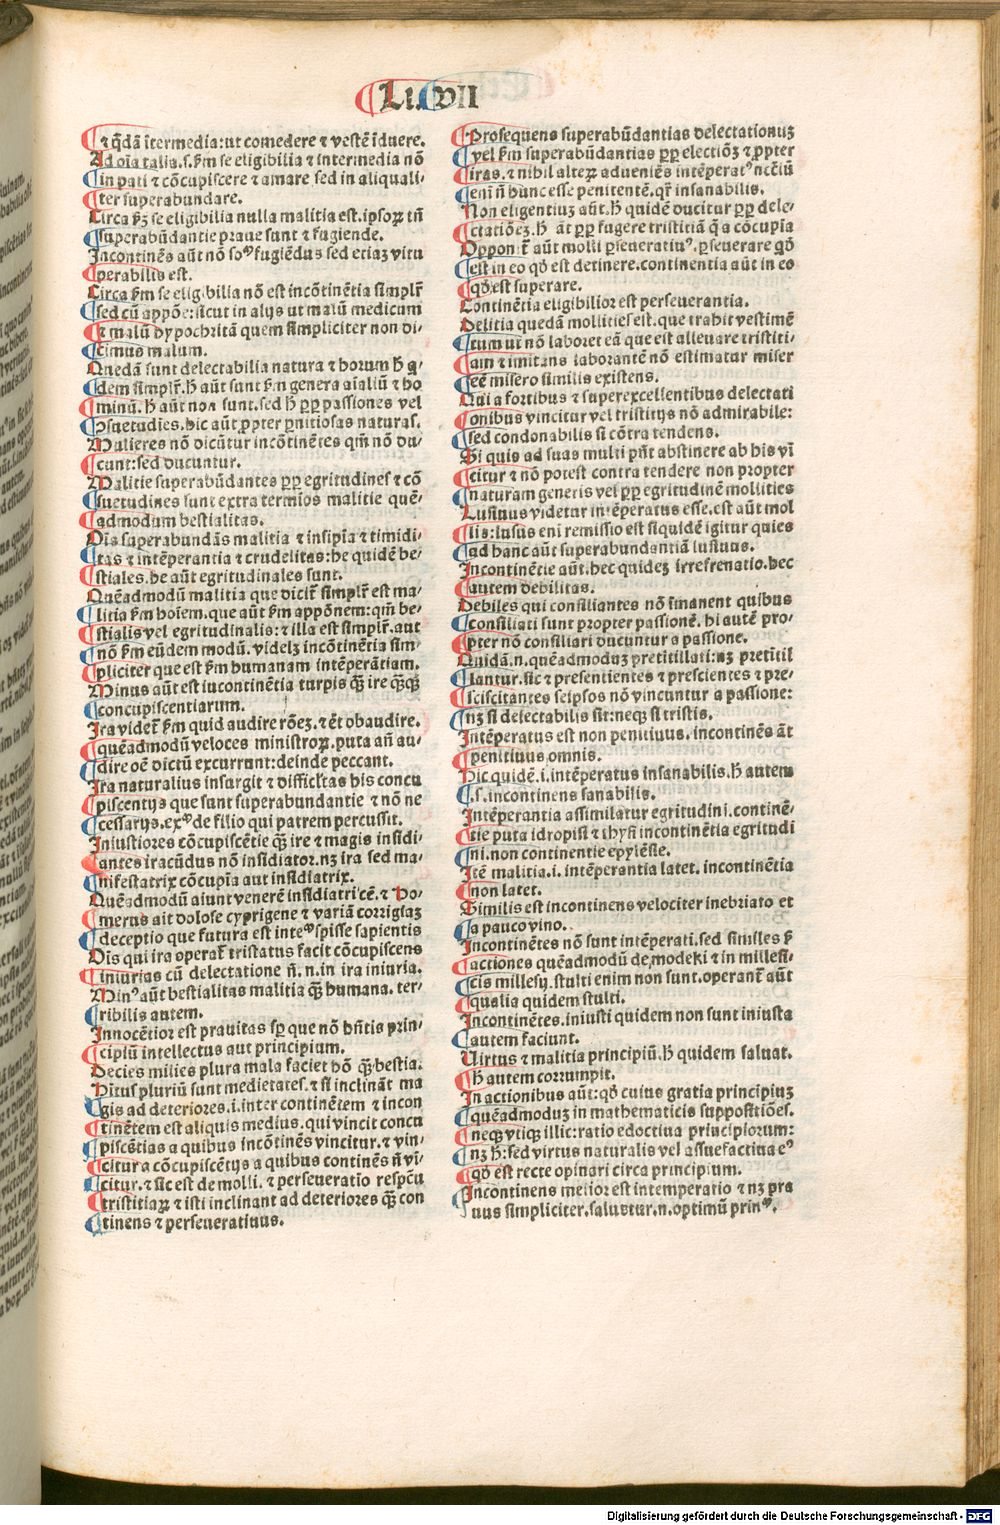 Li. VII
⁊ q̃dã ĩtermedia: ut comedere ⁊ vestẽ ĩduere.
Ad oĩa talia .s. ẜm se eligibilia ⁊ intermedia nõ
in pati ⁊ cõcupiscere ⁊ amare sed in aliquali⸗
ter superabundare.
Circa ẜꝫ se eligibilia nulla malitia est. ipsoꝝ tñ
superabũdantie praue sunt ⁊ fugiende.
Incontinẽs aũt nõ so fugiẽdus sed etiaꝫ vitu
perabilis est.
Circa ẜm se eligibilia nõ est incõtinẽtia simplr̃
sed cũ appõe: sicut in alijs ut malũ medicum
⁊ malũ ðypochritã quem simpliciter non di⸗
cimus malum.
Quedã sunt delectabilia natura ⁊ horum ħ q̃
dem simplr̃. ħ aũt sunt ẜm genera aĩaliũ ⁊ ho
minũ. ħ aũt non sunt. sed ħ ꝓpꝑ passiones vel
ꝯsuetudies. hic aũt ꝓpter ꝑnitiosas naturas.
Mulieres nõ dicũtur incõtinẽtes qm̃ nõ du⸗
cunt: sed ducuntur.
Malitie superabũdantes ꝓpꝑ egritudines ⁊ cõ
suetudines sunt extra termĩos malitie quẽ⸗
admodum bestialitas.
Ois superabundãs malitia ⁊ insipĩa ⁊ timidi⸗
tas ⁊ intẽperantia ⁊ crudelitas: he quidẽ be⸗
stiales. he aũt egritudinales sunt.
Quẽadmodũ malitia que dicit̃ simplr̃ est ma⸗
litia ẜm hoĩem. que aũt ẜm appõnem: qm̃ be⸗
stialis vel egritudinalis: ⁊ illa est simplr̃. aut
nõ ẜm eũdem modũ. videlꝫ incõtinẽtia sim⸗
pliciter que est ẜm humanam intẽperãtiam.
Minus aũt est incontinẽtia turpis qꝫ̃ ire qꝫ̃qꝫ̃
concupiscentiarum.
Ira videt̃ ẜm quid audire rõeꝫ. ⁊ ẽt obaudire.
quẽadmodũ veloces ministroꝝ. puta añ au⸗
dire oẽ dictũ excurrunt: deinde peccant.
Ira naturalius insurgit ⁊ difficltas his concu
piscentijs que sunt superabundantie ⁊ nõ ne
cessarijs. ex de filio qui patrem percussit.
Iniustiores cõcupiscẽtie qꝫ̃ ire ⁊ magis insidi⸗
antes iracũdus nõ insidiator. nꝫ ira sed ma⸗
nifestatrix cõcupĩa aut insidiatrix.
Quẽadmodũ aiunt venerẽ insidiatricẽ. ⁊ Ho⸗
merus ait dolose cyprigene ⁊ variã corrigiaꝫ
deceptio que futura est inte spisse sapientis
Ois qui ira operat̃ tristatus facit cõcupiscens
iniurias cũ delectatione ñ. n. in ira iniuria.
Minꝰ aũt bestialitas malitia qꝫ̃ humana. ter⸗
ribilis autem.
Innocẽtior est prauitas sꝑ que nõ hñtis prin⸗
cipiũ intellectus aut principium.
Decies milies plura mala faciet hõ qꝫ̃ bestia.
Hitus pluriũ sunt medietates. ⁊ si inclinãt ma
gis ad deteriores .i. inter continẽtem ⁊ incon
tinẽtem est aliquis medius. qui vincit concu
piscẽtias a quibus incõtinẽs vincitur. ⁊ vin⸗
citur a cõcupiscẽtijs a quibus continẽs ñ vĩ⸗
citur. ⁊ sic est de molli. ⁊ perseueratio respc̃u
tristitiaꝝ ⁊ isti inclinant ad deteriores qꝫ̃ con
tinens ⁊ perseueratiuus.
Prosequens superabũdantias delectationuꝫ
vel ẜm superabũdantias ꝓpꝑ electiõꝫ ⁊ ꝓpter
iras. ⁊ nihil alteꝝ adueniẽs intẽperatꝰ ncc̃iũ
eni ñ hunc esse penitentẽ. qꝛ insanabilis.
Non eligentiuꝫ aũt. ħ quidẽ ducitur ꝓpꝑ dele⸗
ctatiõeꝫ. ħ ãt ꝓpꝑ fugere tristitiã q̃ a cõcupĩa
Oppont̃ aũt molli ꝑseueratiuꝰ. ꝑseuerare qõ
est in eo qð est detinere. continentia aũt in eo
qð est superare.
Continẽtia eligibilior est perseuerantia.
Delitia quedã mollities est. que trahit vestimẽ
tum ut nõ laboret eã que est alleuare tristiti⸗
am ⁊ imitans laborantẽ nõ estimatur miser
eẽ misero similis existens.
Qui a fortibus ⁊ superexcellentibus delectati
onibus vincitur vel tristitijs nõ admirabile:
sed condonabilis si cõtra tendens.
Si quis ad suas multi pñt abstinere ab his vĩ
citur ⁊ nõ potest contra tendere non propter
naturam generis vel ꝓpꝑ egritudinẽ mollities
Lusiuus videtur intẽperatus esse. est aũt mol
lis: lusus eni remissio est siquidẽ igitur quies
ad hanc aũt superabundantiã lusiuus.
Incontinẽtie aũt. hec quideꝫ irrefrenatio. hec
autem debilitas.
Debiles qui consiliantes nõ ĩmanent quibus
consiliati sunt propter passionẽ. hi autẽ pro⸗
pter nõ consiliari ducuntur a passione.
Quidã. n. quẽadmoduꝫ pretitillati: nꝫ pretĩtil
lantur. sic ⁊ presentientes ⁊ prescientes ⁊ pre⸗
sciscitantes seipsos nõ vincuntur a passione:
nꝫ si delectabilis sit: neqꝫ si tristis.
Intẽperatus est non penitiuus. incontinẽs ãt
penitiuus omnis.
Hic quidẽ .i. intẽperatus insanabilis. ħ autem
.s. incontinens sanabilis.
Intẽperantia assimilatur egritudini. continẽ⸗
tie puta idropisi ⁊ thysi incontinẽtia egritudi
ni. non continentie epylẽsie.
Itẽ malitia .i. intẽperantia latet. incontinẽtia
non latet.
Similis est incontinens velociter inebriato et
a pauco vino.
Incontinẽtes nõ sunt intẽperati. sed similes ẜ
actiones quẽadmodũ demodeki ⁊ in millesi⸗
cis millesij. stulti enim non sunt. operant̃ aũt
qualia quidem stulti.
Incontinẽtes. iniusti quidem non sunt iniusta
autem faciunt.
Uirtus ⁊ malitia principiũ. ħ quidem saluat.
ħ autem corrumpit.
In actionibus aũt: qð cuius gratia principiuꝫ
quẽadmoduꝫ in mathematicis suppositiões.
neqꝫ vtiqꝫ illic: ratio edoctiua principiorum:
nꝫ ħ: sed virtus naturalis vel assuefactiua eꝰ
qð est recte opinari circa principium.
Incontinens melior est intemperatio ⁊ nꝫ pra
uus simpliciter. saluatur. n. optimũ prin.
Digitalisierung gefördert durch die Deutsche Forschungsgemeinschaft - DFG